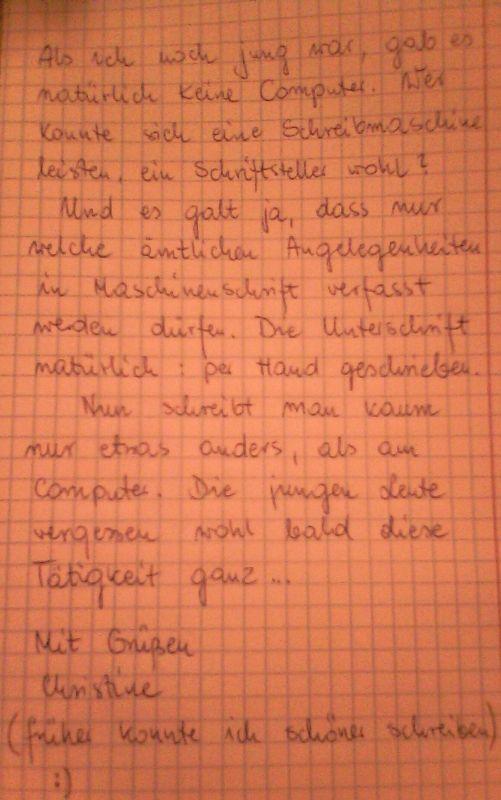 Als ich noch jung war, gab es
natürlich keine Computer. Wer
konnte sich eine Schreibmaschine
leisten, ein Schriftsteller wohl?
Und es galt ja, dass nur
welche ämtlichen Angelegenheiten
in Maschinenschrift verfasst
werden dürfen. Die Unterschrift
natürlich: per Hand geschrieben.
Nun schreibt man kaum
nur etwas anders, als am
Computer. Die jungen Leute
vergessen wohl bald diese
Tätigkeit ganz...
Mit Grüßen
Christine
(früher konnte ich schöner schreiben)
:)